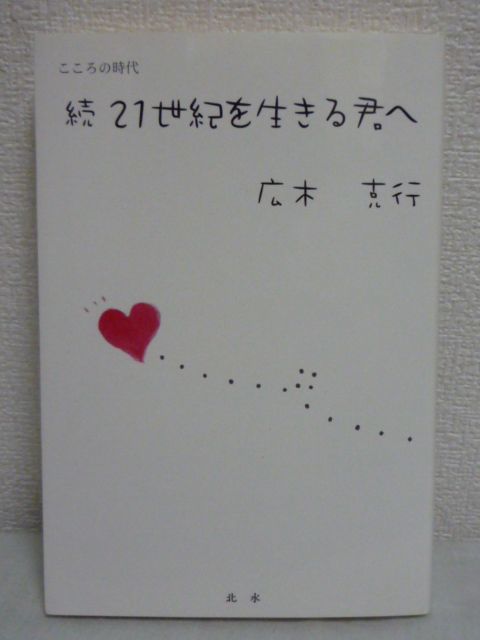 こころの時代
続 21世紀を生きる君へ
広木 克行
北水